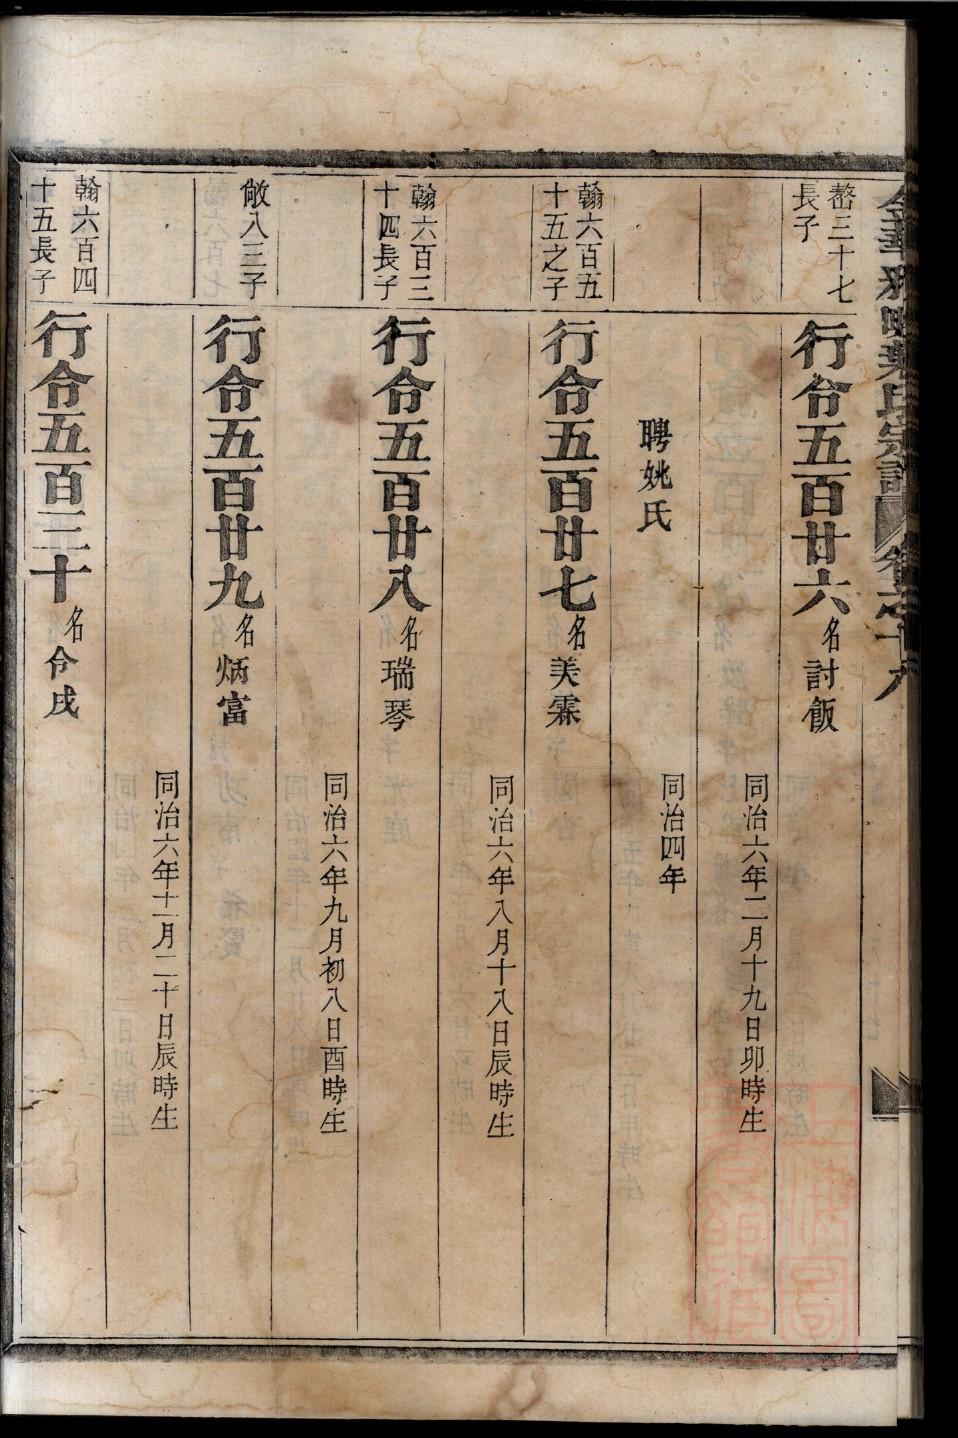 嶅三十七
長子
行令五百廿六名討飯
同治六年二月十九日卯時生
聘姚氏
同治四年
翰六百五
十五之子
行令五百廿七名美霖
同治六年八月十八日辰時生
翰六百三
十四長子
行令五百廿八名瑞琴
同治六年九月初八日酉時生
敞八三子
行令五百廿九名炳富
同治六年十一月二十日辰時生
翰六百四
十五長子
行令五百三十名令戌